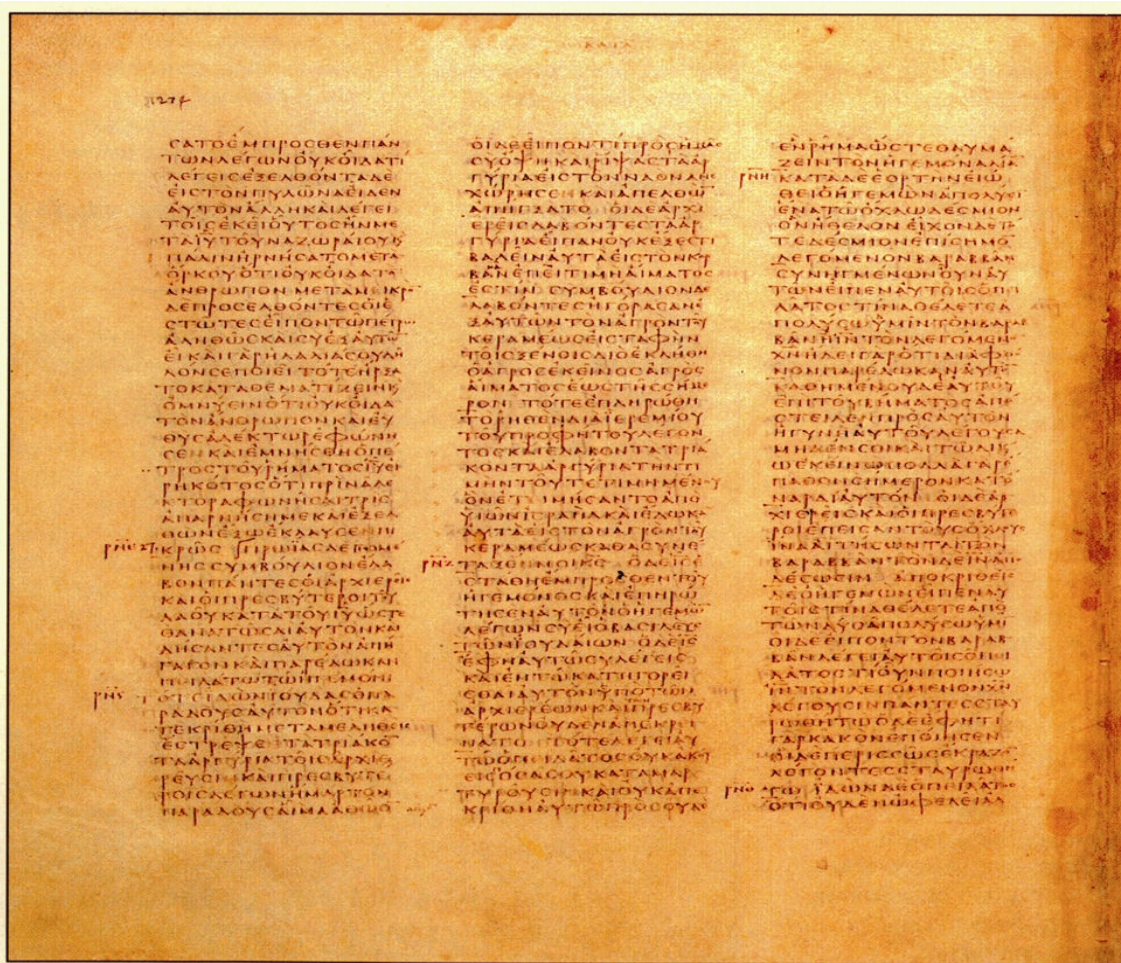 ΚΑΤΑ
ϹΑΤΟΕΜΠΡΟϹΘΕΝΠΑΝ
ΤΩΝΛΕΓΩΝΟΥΚΟΙΔΑΤΙ
ΛΕΓΕΙϹΕΞΕΛΘΟΝΤΑΔΕ
ΕΙϹΤΟΝΠΥΛΩΝΑΕΙΔΕΝ
ΑΥΤΟΝΑΛΛΗΚΑΙΛΕΓΕΙ
ΤΟΙϹΕΚΕΙΟΥΤΟϹΗΝΜΕ
ΤΑΙΥΤΟΥΝΑΖΩΡΑΙΟΥΚ
ΠΑΛΙΝΗΡΝΗϹΑΤΟΜΕΤΑ
ΟΡΚΟΥΟΤΙΟΥΚΟΙΔΑΤΟ
ΑΝΘΡΩΠΟΝΜΕΤΑΜΕΙΚΡΟ
ΔΕΠΡΟϹΕΛΘΟΝΤΕϹΟΙΕ
ϹΤΩΤΕϹΕΙΠΟΝΤΩΠΕΤΡΩ
ΑΛΗΘΩϹΚΑΙϹΥΕΞΑΥΤΩ
ΕΙΚΑΙΓΑΡΗΛΑΛΙΑϹΟΥΔΗ
ΛΟΝϹΕΠΟΙΕΙΤΟΤΕΗΡΞΑ
ΤΟΚΑΤΑΘΕΜΑΤΙΖΕΙΝΚ
ΟΜΝΥΕΙΝΟΤΙΟΥΚΟΙΔΑ
ΤΟΝΑΝΘΡΩΠΟΝΚΑΙΕΥ
ΘΥϹΑΛΕΚΤΩΡΕΦΩΝΗ
ϹΕΝΚΑΙΕΜΝΗϹΘΗΟΠΕ
ΤΡΟϹΤΟΥΡΗΜΑΤΟϹΙΥΕΙ
ΡΗΚΟΤΟϹΟΤΙΠΡΙΝΑΛΕ
ΚΤΟΡΑΦΩΝΗϹΑΙΤΡΙϹ
ΑΠΑΡΝΗϹΗΜΕΚΑΙΕΞΕΛ
ΘΩΝΕΞΩΕΚΛΑΥϹΕΝΠΙ
ΚΡΩϹ ΠΡΩΙΑϹΔΕΓΕΝΟΜΕ
ΝΗϹϹΥΜΒΟΥΛΙΟΝΕΛΑ
ΒΟΝΠΑΝΤΕϹΟΙΑΡΧΙΕΡΕΙϹ
ΚΑΙΟΙΠΡΕϹΒΥΤΕΡΟΙΤΟΥ
ΛΑΟΥΚΑΤΑΤΟΥΙΥΩϹΤΕ
ΘΑΝΑΤΩϹΑΙΑΥΤΟΝΚΑΙ
ΔΗϹΑΝΤΕϹΑΥΤΟΝΑΠΗ
ΓΑΓΟΝΚΑΙΠΑΡΕΔΩΚΑΝ
ΠΕΙΛΑΤΩΤΩΗΓΕΜΟΝΙ
ΤΟΤΕΙΔΩΝΙΟΥΔΑϹΟΠΑ
ΡΑΔΟΥϹΑΥΤΟΝΟΤΙΚΑ
ΤΕΚΡΙΘΗΜΕΤΑΜΕΛΗΘΕΙϹ
ΕϹΤΡΕΨΕ ΤΑΤΡΙΑΚΟ
ΤΑΑΡΓΥΡΙΑΤΟΙϹΑΡΧΙΕ
ΡΕΥϹΙΝΚΑΙΠΡΕϹΒΥΤΕ
ΡΟΙϹΛΕΓΩΝΗΜΑΡΤΟΝ
ΠΑΡΑΔΟΥϹΑΙΜΑΑΘΩΟ
ΟΙΔΕΕΙΠΟΝΤΙΠΡΟϹΗΜΑϹ
ϹΥΟΨΗΚΑΙΡΙΨΑϹΤΑΑΡ
ΓΥΡΙΑΕΙϹΤΟΝΝΑΟΝΑΝΕ
ΧΩΡΗϹΕΝΚΑΙΑΠΕΛΘΩ
ΑΠΗΓΞΑΤΟ ΟΙΔΕΑΡΧΙ
ΕΡΕΙϹΛΑΒΟΝΤΕϹΤΑΑΡ
ΓΥΡΙΑΕΙΠΑΝΟΥΚΕΞΕϹΤΙ
ΒΑΛΕΙΝΑΥΤΑΕΙϹΤΟΝΚΟΡ
ΒΑΝΕΠΕΙΤΙΜΗΑΙΜΑΤΟϹ
ΕϹΤΙΝ ϹΥΜΒΟΥΛΙΟΝΔΕ
ΛΑΒΟΝΤΕϹΗΓΟΡΑϹΑΝΕ
ΞΑΥΤΩΝΤΟΝΑΓΡΟΝΤΟΥ
ΚΕΡΑΜΕΩϹΕΙϹΤΑΦΗΝ
ΤΟΙϹΞΕΝΟΙϹΔΙΟΕΚΛΗΘΗ
ΟΑΓΡΟϹΕΚΕΙΝΟϹΑΓΡΟϹ
ΑΙΜΑΤΟϹΕΩϹΤΗϹϹΗΜΕ
ΡΟΝ ΤΟΤΕΕΠΛΗΡΩΘΗ
ΤΟΡΗΘΕΝΔΙΑΙΕΡΕΜΙΟΥ
ΤΟΥΠΡΟΦΗΤΟΥΛΕΓΟΝ
ΤΟϹΚΑΙΕΛΑΒΟΝΤΑΤΡΙΑ
ΚΟΝΤΑΑΡΓΥΡΙΑΤΗΝΤΙ
ΜΗΝΤΟΥΤΕΤΙΜΗΜΕΝΟΥ
ΟΝΕΤΙΜΗϹΑΝΤΟΑΠΟ
ΥΙΩΝΙϹΡΑΗΛΚΑΙΕΔΩΚΑ
ΑΥΤΑΕΙϹΤΟΝΑΓΡΟΝΤΟΥ
ΚΕΡΑΜΕΩϹΚΑΘΑϹΥΝΕ
ΤΑΞΕΝΜΟΙΚϹ ΟΔΕΙϹ
ΕϹΤΑΘΗΕΜΠΡΟϹΘΕΝΤΟΥ
ΗΓΕΜΟΝΟϹΚΑΙΕΠΗΡΩ
ΤΗϹΕΝΑΥΤΟΝΟΗΓΕΜΩ
ΛΕΓΩΝϹΥΕΙΟΒΑϹΙΛΕΥϹ
ΤΩΝΙΟΥΔΑΙΩΝ ΟΔΕΙϹ
ΕΦΗΑΥΤΩϹΥΛΕΓΕΙϹ
ΚΑΙΕΝΤΩΚΑΤΗΓΟΡΕΙ
ϹΘΑΙΑΥΤΟΝΥΠΟΤΩΝ
ΑΡΧΙΕΡΕΩΝΚΑΙΠΡΕϹΒΥ
ΤΕΡΩΝΟΥΔΕΝΑΠΕΚΡΙ
ΝΑΤΟ ΤΟΤΕΛΕΓΕΙΑΥ
ΤΩΟΠΕΙΛΑΤΟϹΟΥΚΑΚΟΥ
ΕΙϹΟϹΑϹΟΥΚΑΤΑΜΑΡ
ΤΥΡΟΥϹΙΝΚΑΙΟΥΚΑΠΕ
ΚΡΙΘΗΑΥΤΩΠΡΟϹΟΥΔΕ
ΕΝΡΗΜΑΩϹΤΕΘΑΥΜΑ
ΖΕΙΝΤΟΝΗΓΕΜΟΝΑΛΙΑ
ΚΑΤΑΔΕΕΟΡΤΗΝΕΙΩ
ΘΕΙΟΗΓΕΜΩΝΑΠΟΛΥΕΙ
ΕΝΑΤΩΟΧΛΩΔΕϹΜΙΟΝ
ΟΝΗΘΕΛΟΝΕΙΧΟΝΔΕΤΟ
ΤΕΔΕϹΜΙΟΝΕΠΙϹΗΜΟ
ΛΕΓΟΜΕΝΟΝΒΑΡΑΒΒΑΝ
ϹΥΝΗΓΜΕΝΩΝΟΥΝΑΥ
ΤΩΝΕΙΠΕΝΑΥΤΟΙϹΟΠΕΙ
ΛΑΤΟϹΤΙΝΑΘΕΛΕΤΕΑ
ΠΟΛΥϹΩΥΜΙΝΤΟΝΒΑΡΑ
ΒΑΝΗΙΝΤΟΝΛΕΓΟΜΕΝ
ΧΝΗΔΕΙΓΑΡΟΤΙΔΙΑΦΘΟ
ΝΟΝΠΑΡΕΔΩΚΑΝΑΥΤΟ
ΚΑΘΗΜΕΝΟΥΔΕΑΥΤΟΥ
ΕΠΙΤΟΥΒΗΜΑΤΟϹΑΠΕ
ϹΤΕΙΛΕΝΠΡΟϹΑΥΤΟΝ
ΗΓΥΝΗΑΥΤΟΥΛΕΓΟΥϹΑ
ΜΗΔΕΝϹΟΙΚΑΙΤΩΔΙΚΑΙ
ΩΕΚΕΙΝΩΠΟΛΛΑΓΑΡΕ
ΠΑΘΟΝϹΗΜΕΡΟΝΚΑΤΟ
ΝΑΡΔΙΑΥΤΟΝ ΟΙΔΕΑΡ
ΧΙΕΡΕΙϹΚΑΙΟΙΠΡΕϹΒΥΤΕ
ΡΟΙΕΠΕΙϹΑΝΤΟΥϹΟΧΛΟΥϹ
ΙΝΑΑΙΤΗϹΩΝΤΑΙΤΟΝ
ΒΑΡΑΒΒΑΝΤΟΝΔΕΙΝΑ
ΠΟΛΕϹΩϹΙΝ ΑΠΟΚΡΙΘΕΙϹ
ΔΕΟΗΓΕΜΩΝΕΙΠΕΝΑΥ
ΤΟΙϹΤΙΝΑΘΕΛΕΤΕΑΠΟ
ΤΩΝΔΥΟΑΠΟΛΥϹΩΥΜΙ
ΟΙΔΕΕΙΠΟΝΤΟΝΒΑΡΑΒ
ΒΑΝΛΕΓΕΙΑΥΤΟΙϹΟΠΕΙ
ΛΑΤΟϹΤΙΟΥΝΠΟΙΗϹΩ
ΙΝΤΟΝΛΕΓΟΜΕΝΟΝΧΝ
ΛΕΓΟΥϹΙΝΠΑΝΤΕϹϹΤΑΥ
ΡΩΘΗΤΩΟΔΕΕΦΗΤΙ
ΓΑΡΚΑΚΟΝΕΠΟΙΗϹΕΝ
ΟΙΔΕΠΕΡΙϹϹΩϹΕΚΡΑΖΟ
ΛΕΓΟΝΤΕϹϹΤΑΥΡΩΘΗ
ΤΩ ΙΔΩΝΔΕΟΠΕΙΛΑΤΟϹ
ΟΤΙΟΥΔΕΝΩΦΕΛΕΙΑΛ